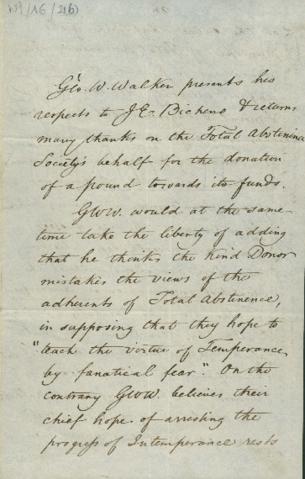 W9/A6/2(6)
Geo. W. Walker presents his
respects to J. E. Bicheno & returns
many thanks on the Total Abstinence
Society's behalf for the donation
of a pound towards its funds.
GWW. would at the same
time take the liberty of adding
that he thinks the kind Donor
mistakes the views of the
adherents of Total Abstinence,
in supposing that they hope to
"teach the virtue of Temperance
by fanatical fear". On the
contrary GWW. believes their
chief hope of arresting the
progress of Intemperance rests